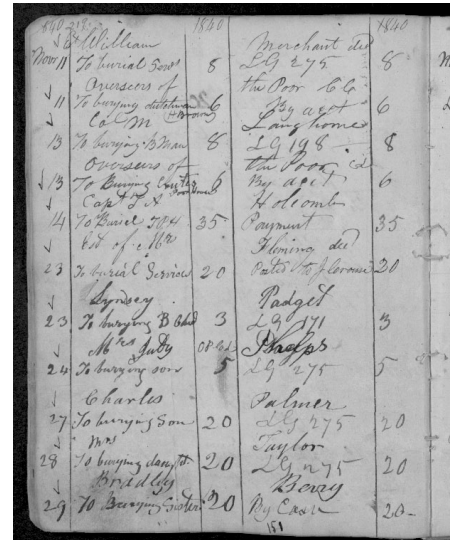 1840 1840 1840
Est William Merchant died
Nov 11 To burial Son 8 LG 275 8
Overseers of the Poor
11 To burying 6 By acct 6
Col M Langhorne
13 To burying B Man 8 LG 198 8
Overseers of the Poor
13 To Burying 6 By acct 6
Capt Holcomb
14 To Buriel 35 Payment 35
Est of Mr Fleming died
23 To burial Services 20 20
Lynsey Padget
23 To burying B Chd 3 LG 171 3
Mrs Judy Phelps
24 To burying son 5 LG 275 5
Charles Palmer
27 To burying Son 20 LG 275 20
Mrs Taylor
28 To burying daugtr 20 LG 275 20
Bradley Berry
29 To Burying Sister 20 By Cash 20
151